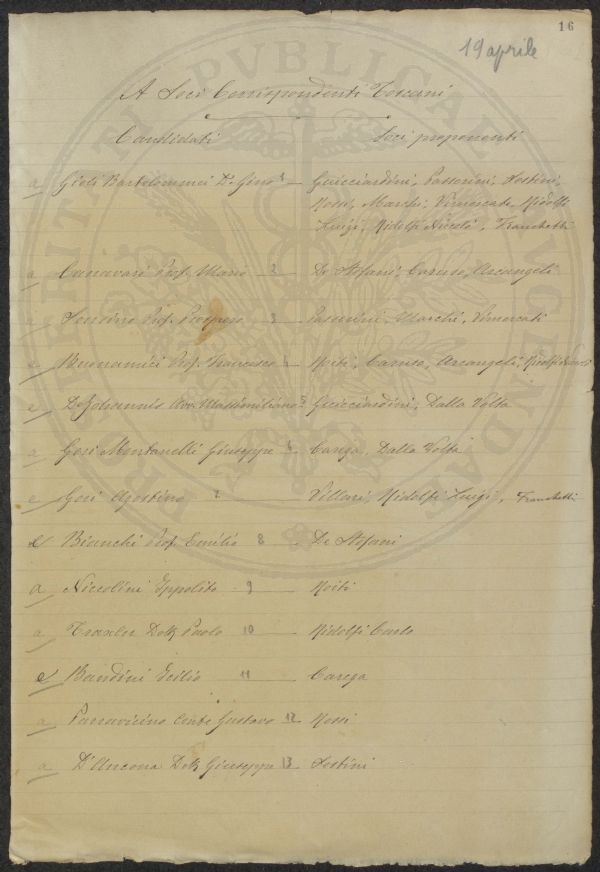 16
19 aprile
A Soci Corrispondenti Toscani
Candidati Soci proponenti
a Gioli Bartolommei D. Gino 1 Guicciardini, Passerini, Sestini,
Rossi, Marchi, Vimercati, Ridolfi
Luigi, Ridolfi Niccolò, Franchetti
a Canavari Prof. Mario 2 De Stefani, Caruso, Arcangeli
a Sonsino Prof. Prospero 3 Passerini, Marchi, Vimercati
e Buonamici Prof. Francesco 4 Roiti, Caruso, Arcangeli, Ridolfi
e De Johannis Avv. Massimiliano 5 Guicciardini, Dalla Volta
a Gori Montanelli Giuseppe 6 Carega, Dalla Volta
e Gori Agostino 7 Villari, Ridolfi Luigi, Franchetti
e Bianchi Prof. Emilio 8 De Stefani
a Niccolini Ippolito 9 Roiti
a Dott. Paolo 10 Ridolfi Carlo
e Bandini Icilio 11 Carega
a Parravicino Conte Gustavo 12 Rossi
a D'Ancona Dott. Giuseppe 13 Sestini
PROSPERITATI PVBLICAE AVGENDAE